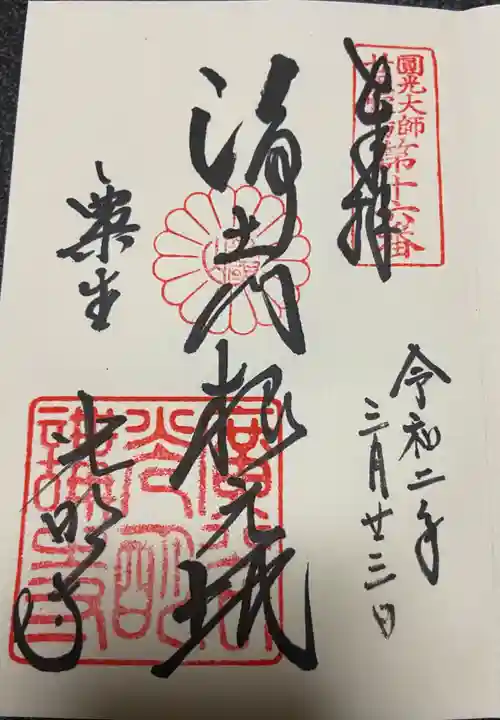 圓光大師
第十六番
奉拝
令和二年
三月廿三日
浄土門根元地
粟生
光明寺